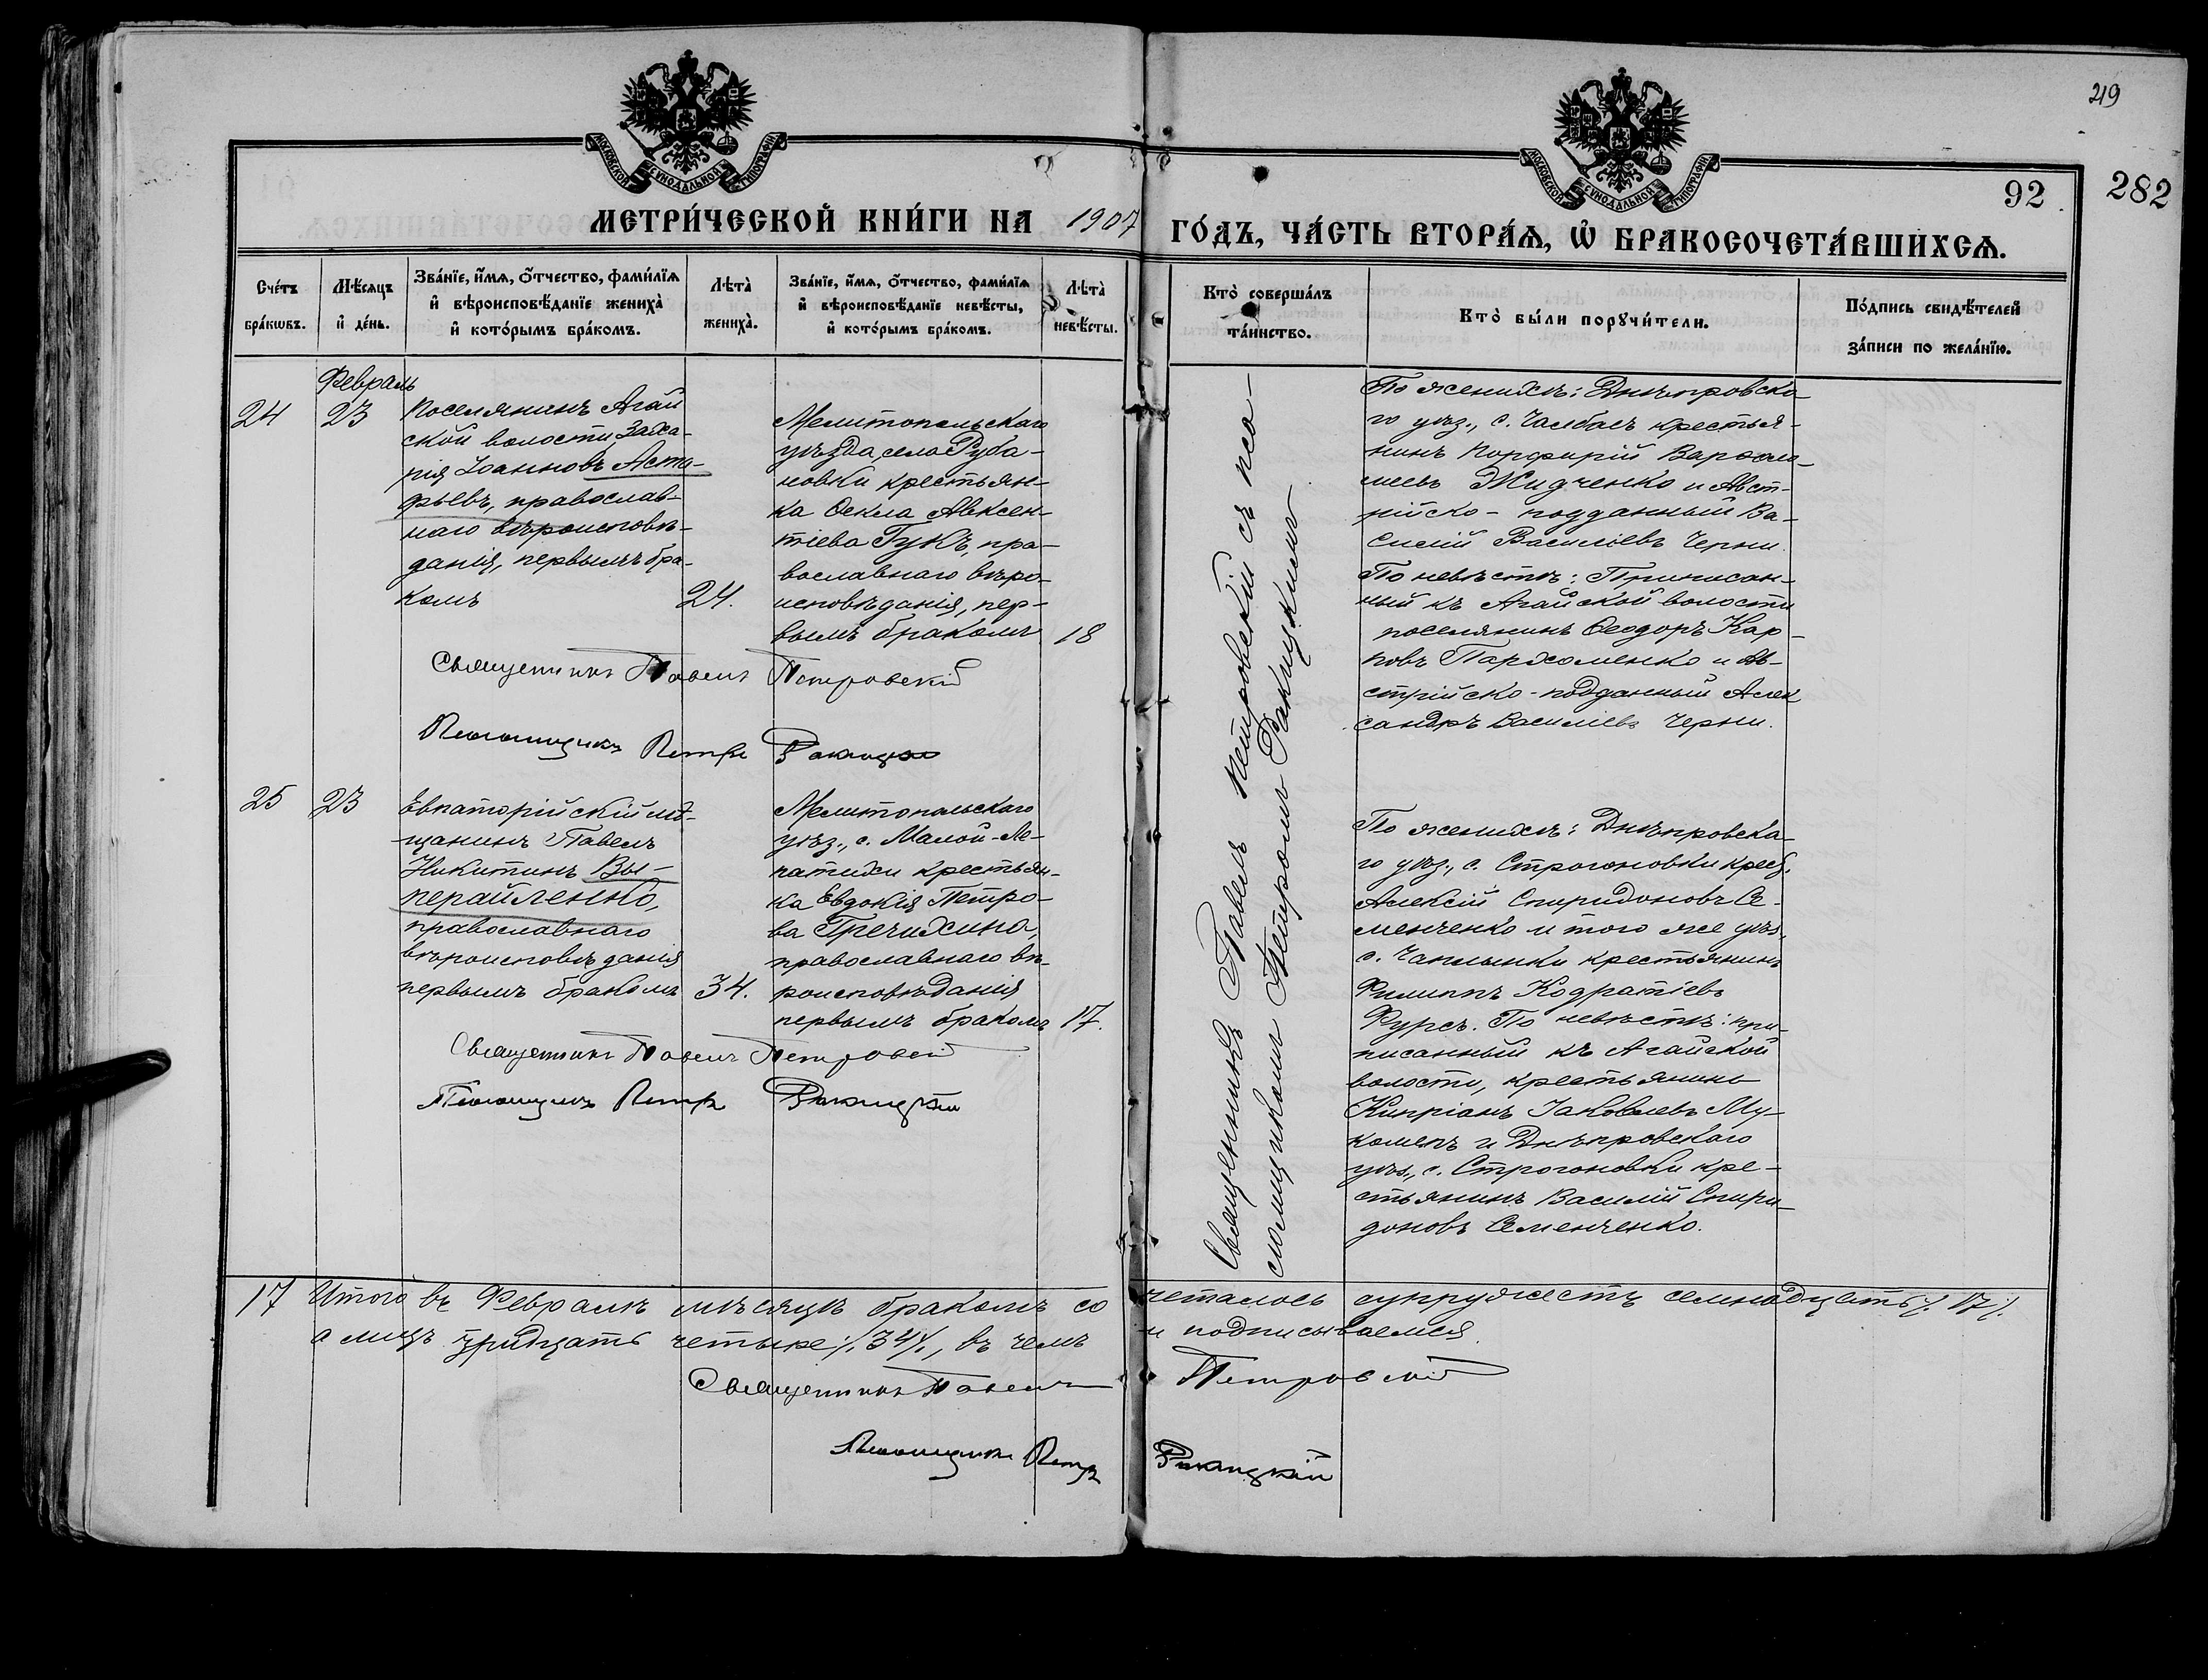 219
92
282
МОСКОВСКОЙ СѴНОДАЛЬНОЙ ТИПОГРАФІИ
МОСКОВСКОЙ СѴНОДАЛЬНОЙ ТИПОГРАФІИ
МЕТРИ́ЧЕСКОЙ КНИ́ГИ НА 1907 ГО́ДЪ, ЧА́СТЬ ВТОРА́Ѧ, Ѽ БРАКОСОЧЕТА́ВШИХСѦ.
Сче́тъ бра́кѡвъ.
Мѣ́сяцъ и҆ де́нь.
Зва́нїе, и҆́мѧ, ѻ҆́тчество, фами́лїѧ
и҆ вѣроисповѣ́данїе жениха̀
и҆ кото́рымъ бра́комъ.
Лѣта̀ жениха̀.
Зва́нїе, и҆́мѧ, ѻ҆́тчество, фами́лїѧ
и҆ вѣроисповѣ́данїе невѣ́сты,
и҆ кото́рымъ бра́комъ.
Лѣта̀ невѣ́сты.
Кто̀ соверша́лъ
та́инство.
Кто̀ бы́ли порꙋчи́тели.
По́дпись свидѣ́телей
за́писи по жела́нїю.
Февраль
24
23
Поселянинъ Агай
ской волости Заха-
рія Іоанновъ Аста-
фьевъ, православ-
наго вѣроисповѣ-
данія, первымъ бра-
комъ
24.
Мелитопольскаго
уѣзда, села Руба-
новки крестьян-
ка Ѳекла Авксен-
тіева Гукъ, пра-
вославнаго вѣро-
исповѣданія, пер-
вымъ бракомъ
18
Священникъ Павелъ Петровскій
Псаломщикъ Петръ Ракицкій
Священникъ Павелъ Петровскій съ пса-
ломщикомъ Петромъ Ракицкимъ
По женихѣ: Днѣпровска-
го уѣз., с. Чалбасъ крестья-
нинъ Порфирій Варѳоло-
меевъ Жидченко и Авст-
рійско-подданный Ва-
силій Василіевъ Черни.
По невѣстѣ: Приписан-
ный къ Агайской волости
поселянинъ Ѳеодоръ Кар-
повъ Пархоменко и Ав-
стрійско-подданный Алек
сандръ Василіевъ Черни.
25
23
Евпаторійскій мѣ-
щанинъ Павелъ
Никитинъ Вы-
перайленко,
православнаго
вѣроисповѣданія
первымъ бракомъ
34.
Мелитопольскаго
уѣз., с. Малой-Ле-
патихи крестьян-
ка Евдокія Петро-
ва Гречихина,
православнаго вѣ-
роисповѣданія
первымъ бракомъ
17.
Священникъ Павелъ Петровскій
Псаломщикъ Петръ Ракицкій
По женихѣ: Днѣпровска-
го уѣз., с. Строгоновки крест.
Алексій Спиридоновъ Се-
менченко и того же уѣз.
с. Чаплынки крестьянинъ
Филиппъ Кодратіевъ
Фурсъ. По невѣстѣ: при-
писанный къ Агайской
волости, крестьянинъ
Кипріанъ Іаковлевъ Му-
и Днѣпровскаго
уѣз., с. Строгоновки кре-
стьянинъ Василій Спири-
доновъ Семенченко.
17 Итого въ Февралѣ мѣсяцѣ бракомъ со четалось супружествъ семнадцать /. 17 /.
а лицъ тридцать четыре /. 34 /., въ чемъ и подписываемся
Священникъ Павелъ Петровскій
Псаломщикъ Петръ Ракицкій